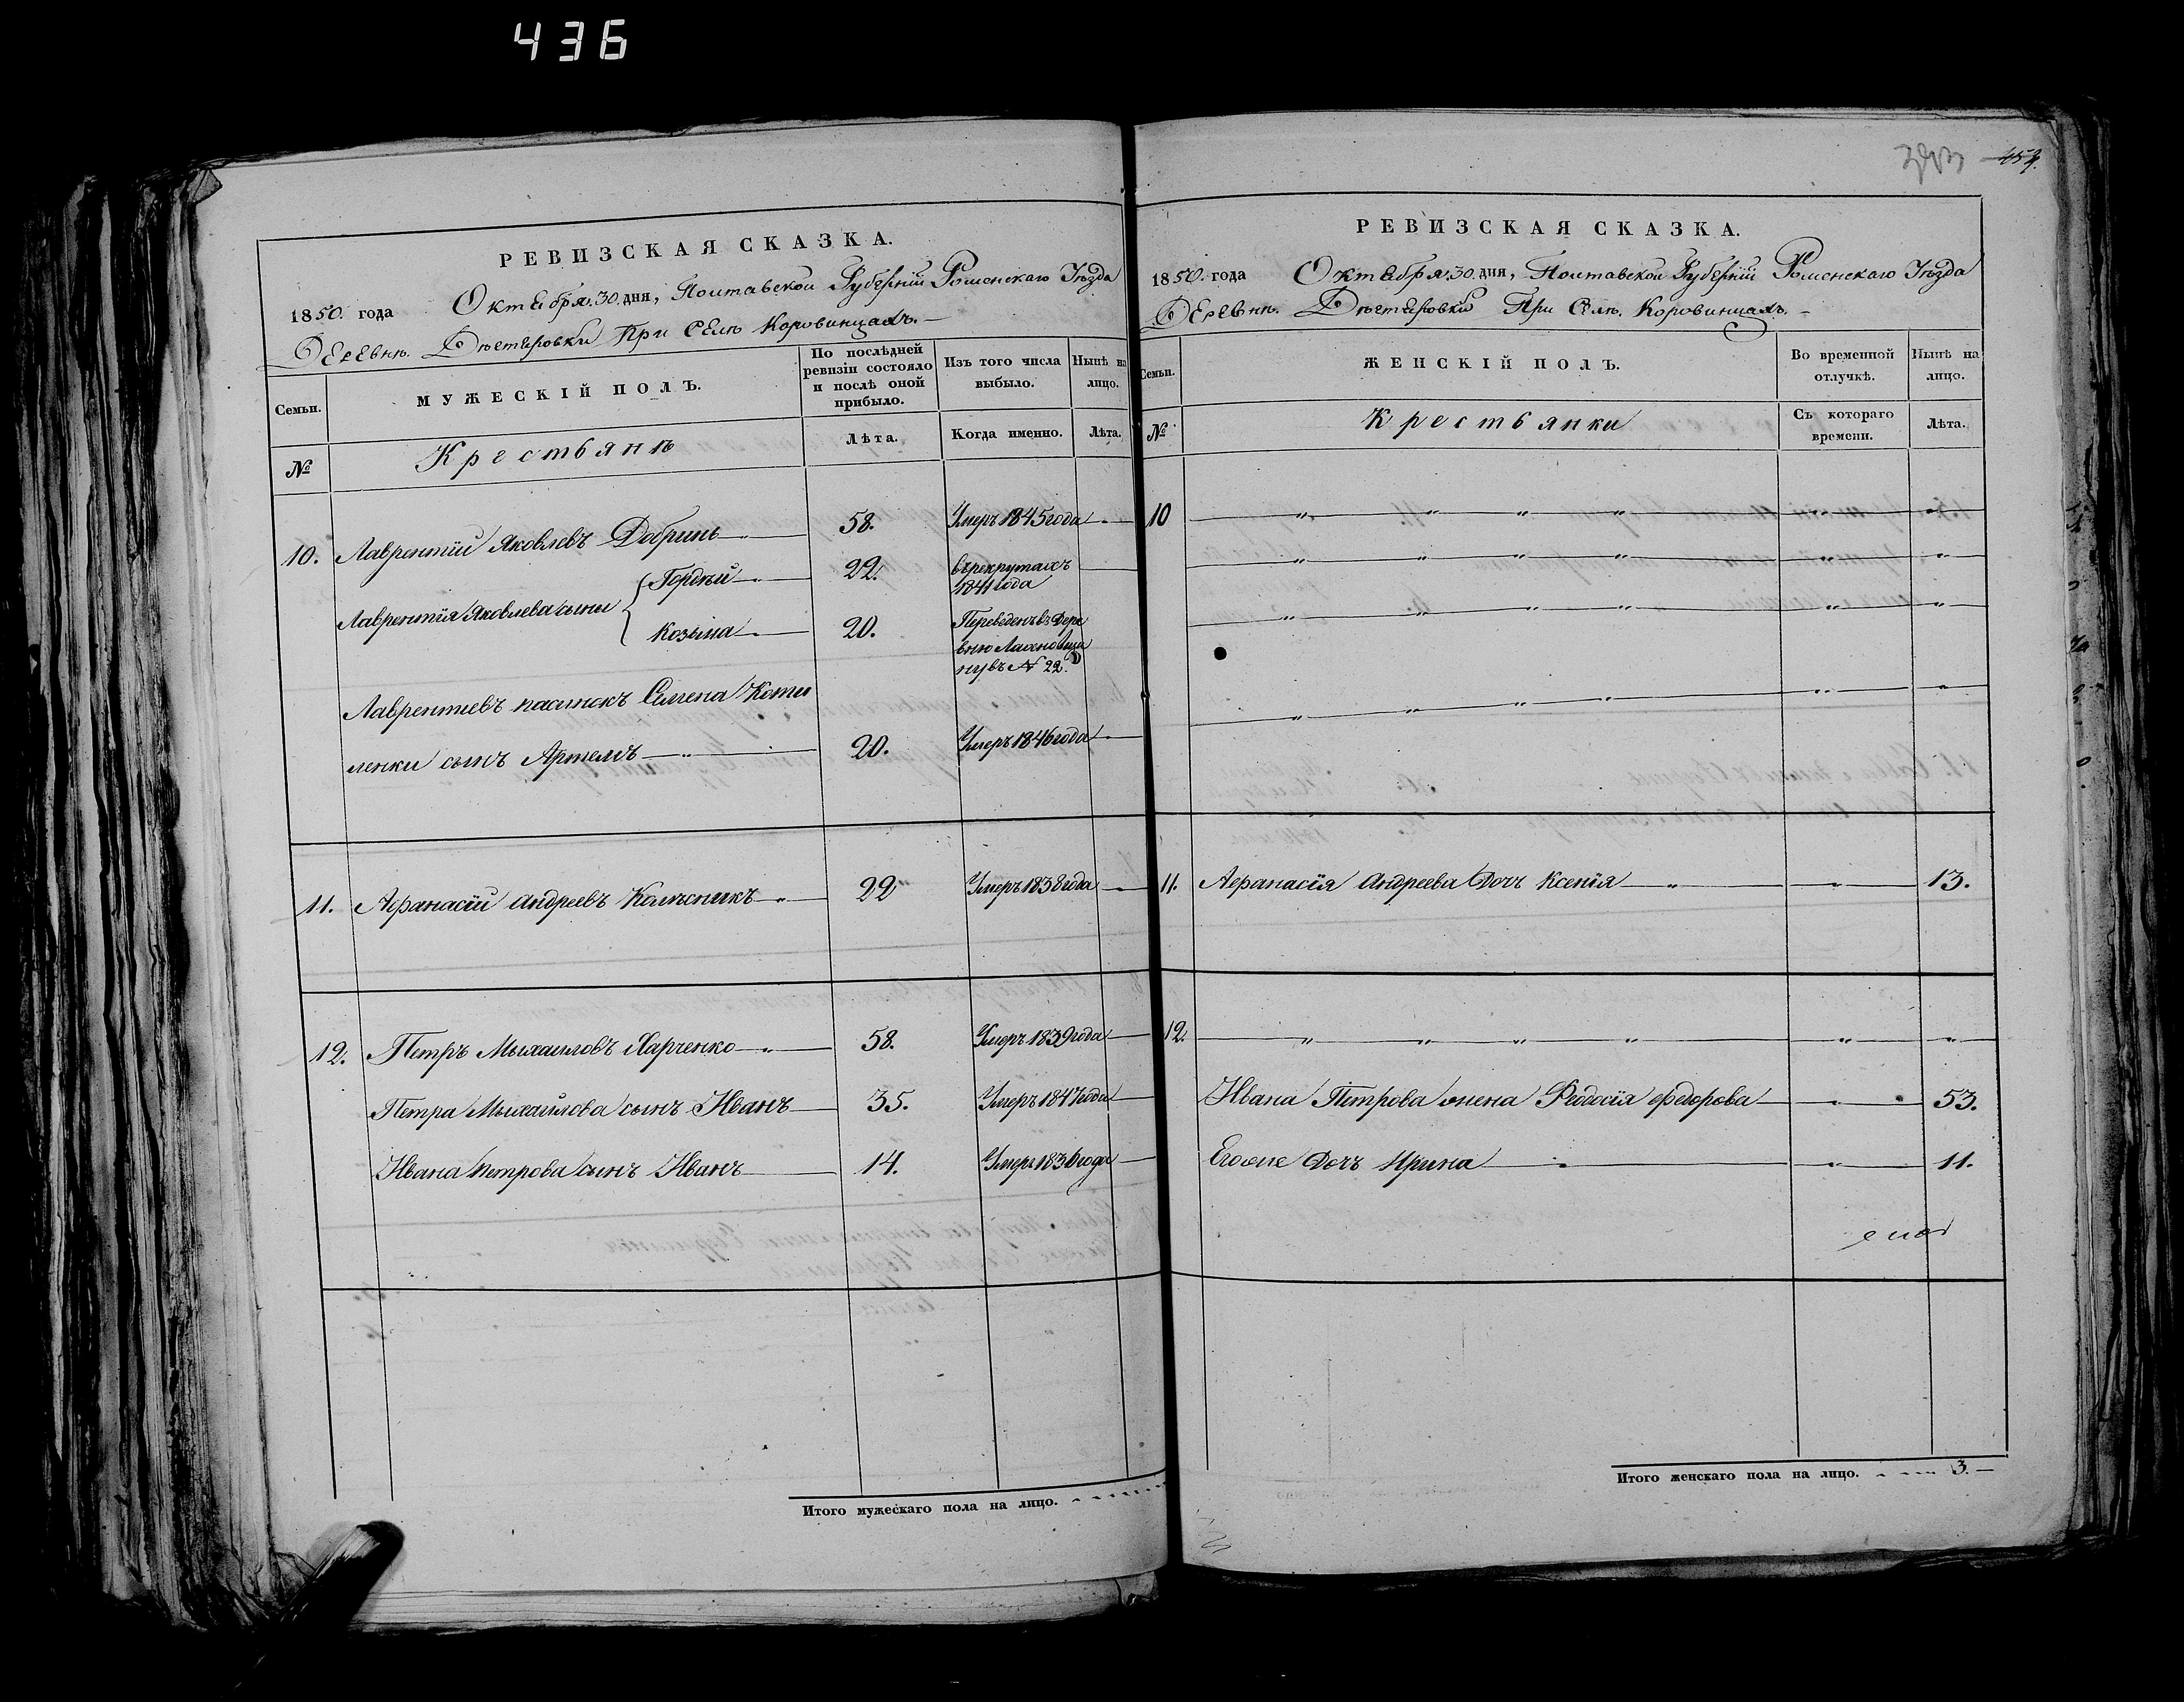 436
РЕВИЗСКАЯ СКАЗКА.
1850. года Октября 30. дня, Полтавской Губерніи Роменскаго Уѣзда
Деревнѣ. При Селѣ Коровинцахъ.
Семьи.
МУЖЕСКІЙ ПОЛЪ.
По послѣдней ревизіи состояло и послѣ оной прибыло.
Изъ того числа выбыло.
Нынѣ на лицо.
№
Крестьянѣ
Лѣта.
Когда именно.
Лѣта.
10. Лаврентій Яковлевъ Добринь 58. Умеръ 1845 года
Лаврентія Яковлева сыны
Гордѣй 22. въ рекрутахъ 1841 года
Козьма 20. Переведенъ въ Деревню
ну въ № 22.
Лаврентіевъ пасынокъ Семена Коти
ленки сынъ Артемъ 20. Умеръ 1846 года
11. Афанасій Андреевъ Колѣсникъ 22 Умеръ 1838 года
12. Петръ Михаиловъ Харченко 58. Умеръ 1839 года
Петра Михайлова сынъ Иванъ 35. Умеръ 1847 года
Ивана Петрова сынъ Иванъ 14. Умеръ 1836 года
Итого мужескаго пола на лицо.
РЕВИЗСКАЯ СКАЗКА.
1850. года Октября 30. дня, Полтавской Губерніи Роменскаго Уѣзда
Деревнѣ. При Селѣ. Коровинцахъ.
Семьи.
ЖЕНСКІЙ ПОЛЪ.
Во временной отлучкѣ.
Нынѣ на лицо.
№
Крестьянки
Съ котораго времени.
Лѣта.
10
11. Афанасія Андреева Дочь Ксенія 13.
12.
Ивана Петрова жена Феодосія Федорова 53.
Егоже Дочь Ирина 11.
Итого женскаго пола на лицо. 3.